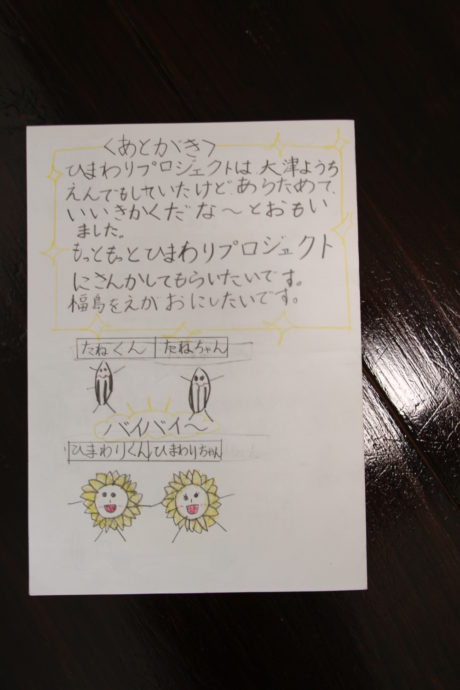 ＜あとがき＞
ひまわりプロジェクトは大津ようち
えんでもしていたけどあらためて、
いいきかくだな〜とおもい
ました。
もっともっとひまわりプロジェクト
にさんかしてもらいたいです。
福島をえがおにしたいです。
たねくん たねちゃん
バイバイ〜
ひまわりくん ひまわりちゃん